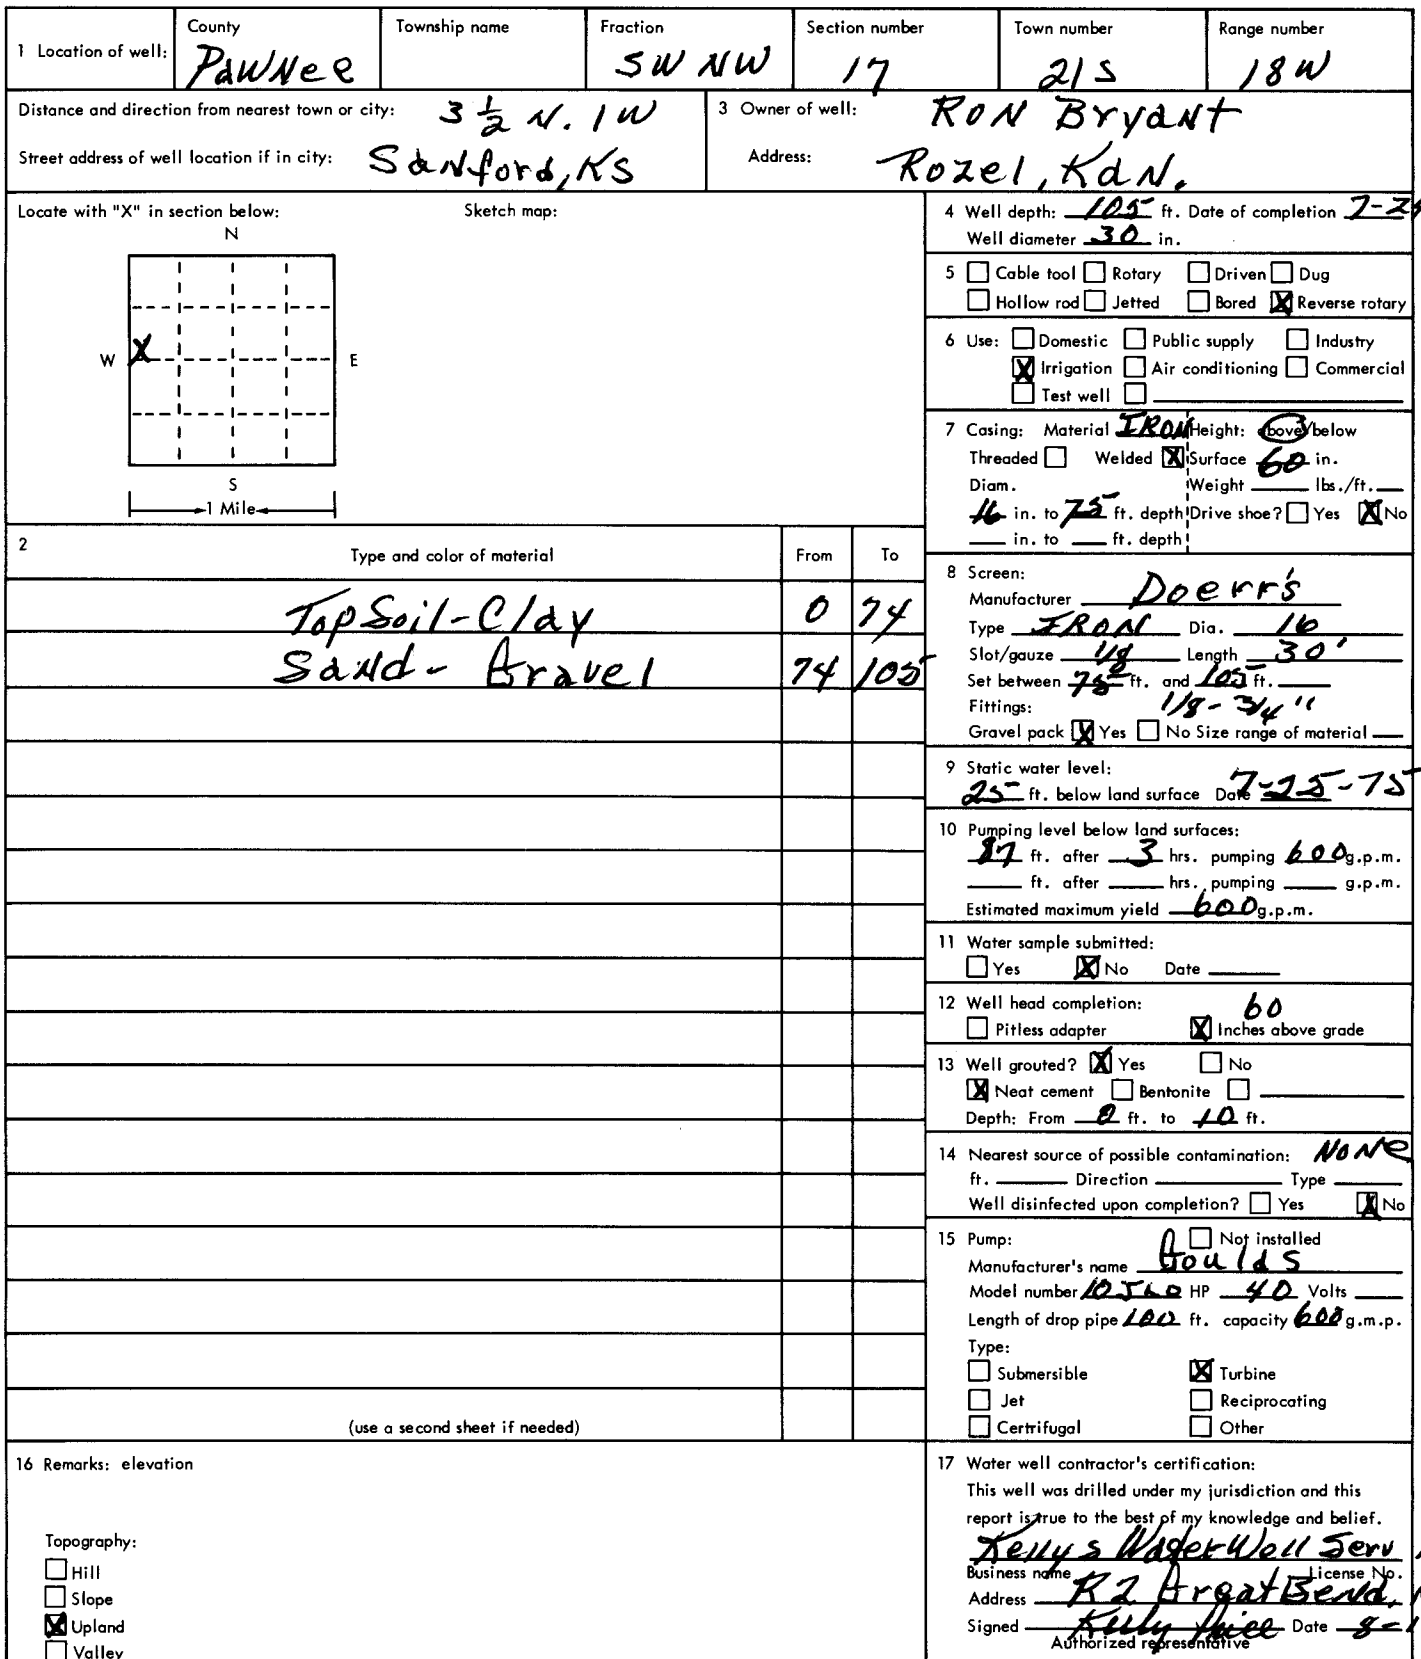 1 Location of well: County Township name Fraction Section number Town number Range number
Pawnee SW NW 17 21S 18W
Distance and direction from nearest town or city: 3 1/2 N. 1W
Street address of well location if in city: Sanford, KS
3 Owner of well: Ron Bryant
Address: Rozel, Kan.
Locate with "X" in section below: Sketch map:
N
X
W E
S
1 Mile
2 Type and color of material From To
Top Soil - Clay 0 74
Sand - Gravel 74 105
(use a second sheet if needed)
4 Well depth: 105 ft. Date of completion
Well diameter 30 in.
5 Cable tool Rotary Driven Dug
Hollow rod Jetted Bored X Reverse rotary
6 Use: Domestic Public supply Industry
X Irrigation Air conditioning Commercial
Test well
7 Casing: Material IRON Height: above/below
Threaded Welded X Surface 60 in.
Diam. Weight lbs./ft.
16 in. to 75 ft. depth Drive shoe? Yes X No
in. to ft. depth
8 Screen:
Manufacturer Doerr's
Type IRON Dia. 16
Slot/gauze 1/8 Length 30'
Set between 75 ft. and 105 ft.
Fittings: 1/8 - 3/4"
Gravel pack X Yes No Size range of material
9 Static water level:
25 ft. below land surface Date 7-25-75
10 Pumping level below land surfaces:
87 ft. after 3 hrs. pumping 600 g.p.m.
ft. after hrs. pumping g.p.m.
Estimated maximum yield 600 g.p.m.
11 Water sample submitted:
Yes X No Date
12 Well head completion: 60
Pitless adapter X Inches above grade
13 Well grouted? X Yes No
X Neat cement Bentonite
Depth: From 0 ft. to 10 ft.
14 Nearest source of possible contamination: None
ft. Direction Type
Well disinfected upon completion? Yes X No
15 Pump: Not installed
Manufacturer's name Goulds
Model number HP 40 Volts
Length of drop pipe 100 ft. capacity 600 g.m.p.
Type:
Submersible X Turbine
Jet Reciprocating
Certrifugal Other
16 Remarks: elevation
Topography:
Hill
Slope
X Upland
Valley
17 Water well contractor's certification:
This well was drilled under my jurisdiction and this
report is true to the best of my knowledge and belief.
Kellys Water Well Serv
Business name License No.
Address R2 Great Bend,
Signed Kelly Price Date
Authorized representative